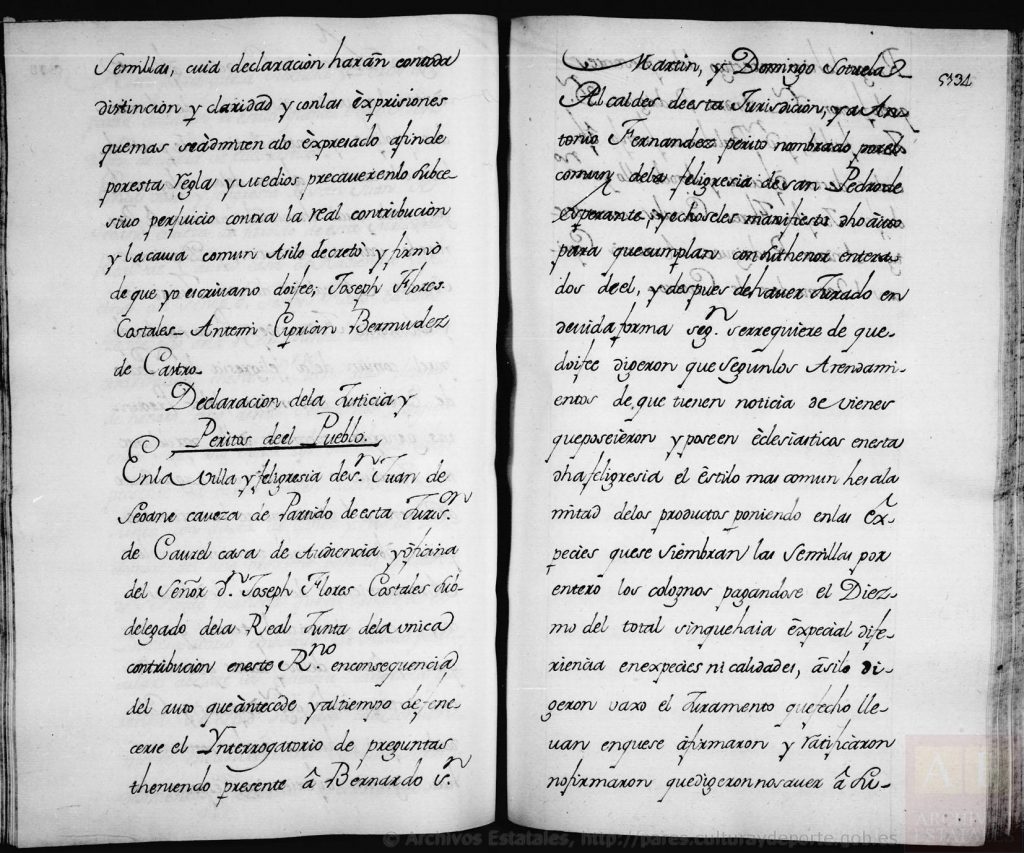 Semillas, cuia declaracion harán contoda
distincion y claridad y conlas èxprisiones
quemas seàdmiten alo èxpresado afinde
poresta regla y medios precaverenlo subce
sivo perjuicio contra la real contribucion
y la causa comun Asilo decretò y firmò
de que yo escrivano doifee; Joseph Flores
Costales_ Antemi Ciprián Bermudez
de Castro_
Declaracion dela Justicia y
Peritos deel Pueblo.
Enla villa y feligresia des.n Juan de
Seoane caveza de Partido deesta Juris.on
de Caurel casa de Audiencia y oficina
del Señor d.n Joseph Flores Costales sub-
delegado dela Real Junta dela unica
contribucion eneste R.no enconsequencia
del auto queàntecede yaltiempo defene-
cerse el Ynterrogatorio de preguntas
theniendo presente â Bernardo s.n
Martin, y Domingo Sotuela
Alcaldes deesta Jurisdicion, y a An-
tonio Fernandez perito nombrado porel
comun dela feligresia de san Pedro de
esperante, yechoseles manifiesto dho àuto
para quecumplan consuthenor entera-
dos deel, y despues dehaver Jurado en
devida forma seg.n serrequiere de que
doifee digeron que segun los Arendami-
entos de que tienen noticia de vienes
queposeieron y poseen èclesiasticos enesta
dha feligresia el èstilo mas comun hes ala
mitad delos productos poniendo enlas êx-
pecies quese siembran las semillas por
entero los colognos pagandose el Diez-
mo del total sinquehaia èxpecial dife-
riencia enexpecies ni calidades, ăsilo di-
geron vaxo el Juramento quefecho lle-
van enquese àfirmaron y ratificaron
nofirmaron quedigeron nosaver â su-
5334
© Archivos Estatales, http://pares.culturaydeporte.gob.es